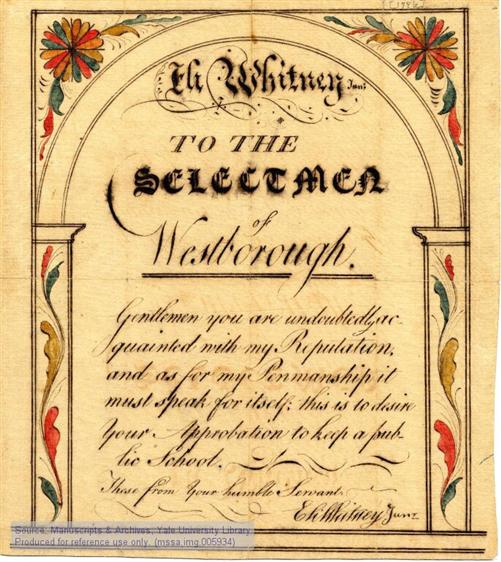 [1786]
Eli Whitney Junr
TO THE
SELECTMEN
of
Westborough.
Gentlemen you are undoubtedly ac-
quainted with my Reputation,
and as for my Penmanship it
must speak for itself; this is to desire
Your Approbation to keep a pub-
lic School.
These from Your humble Servant
Eli Whitney Junr
Source: Manuscripts & Archives, Yale University Library
Produced for reference use only. (mssa.img.005934)